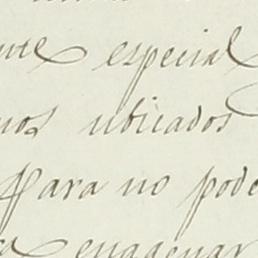 nte especial
nos ubicados
para no pode
enagenar